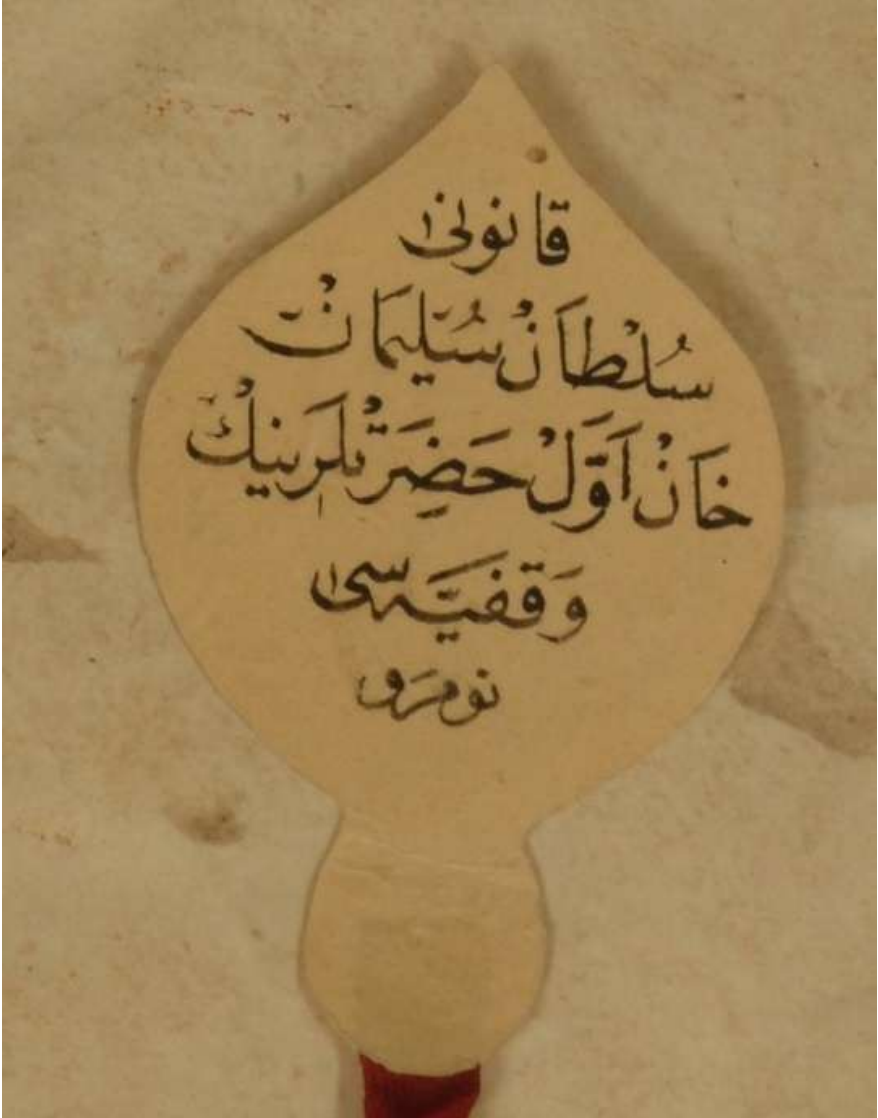 قانونی
سُلْطَانْ سُلَيمَانْ
خَانْ اَوَّلْ حَضِرَتْلَرِينِكْ
وَقفيَّه سی
نومَرو